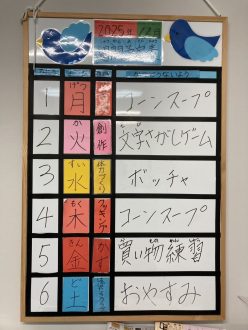 2025年 12月
1 げつ 月 コーンスープ
2 か 火 創作 文字さがしゲーム
3 すい 水 体力づくり ボッチャ
4 もく 木 クッキング コーンスープ
5 きん 金 買い物練習
6 ど 土 おやすみ